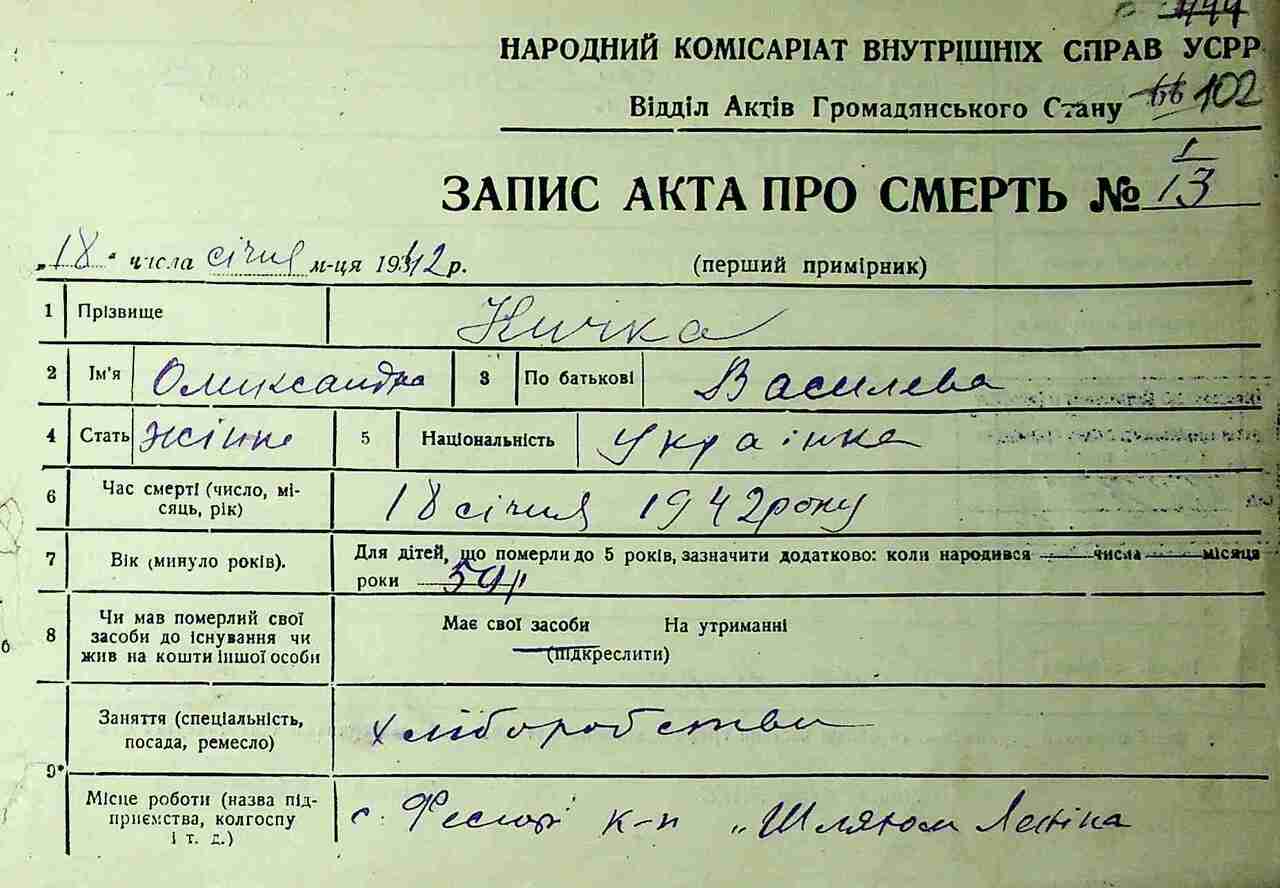 444
НАРОДНИЙ КОМІСАРІАТ ВНУТРІШНІХ СПРАВ УСРР
Відділ Актів Громадянського Стану 66 102
ЗАПИС АКТА ПРО СМЕРТЬ № 1/13
„18" числа січня м-ця 1942 р. (перший примірник)
1 Прізвище Кичка
2 Ім'я Олександра 3 По батькові Василева
4 Стать Жінка 5 Національність Українка
6 Час смерті (число, мі-
сяць, рік) 18 січня 1942 року
7 Вік (минуло років). Для дітей, що померли до 5 років, зазначити додатково: коли народився числа місяця
роки 59
8 Чи мав померлий свої
засоби до існування чи
жив на кошти іншої особи
Має свої засоби На утриманні
(підкреслити)
9 Заняття (спеціальність,
посада, ремесло) хліборобство
Місце роботи (назва під-
приємства, колгоспу
і т. д.) с. к-п „Шляхом Леніна